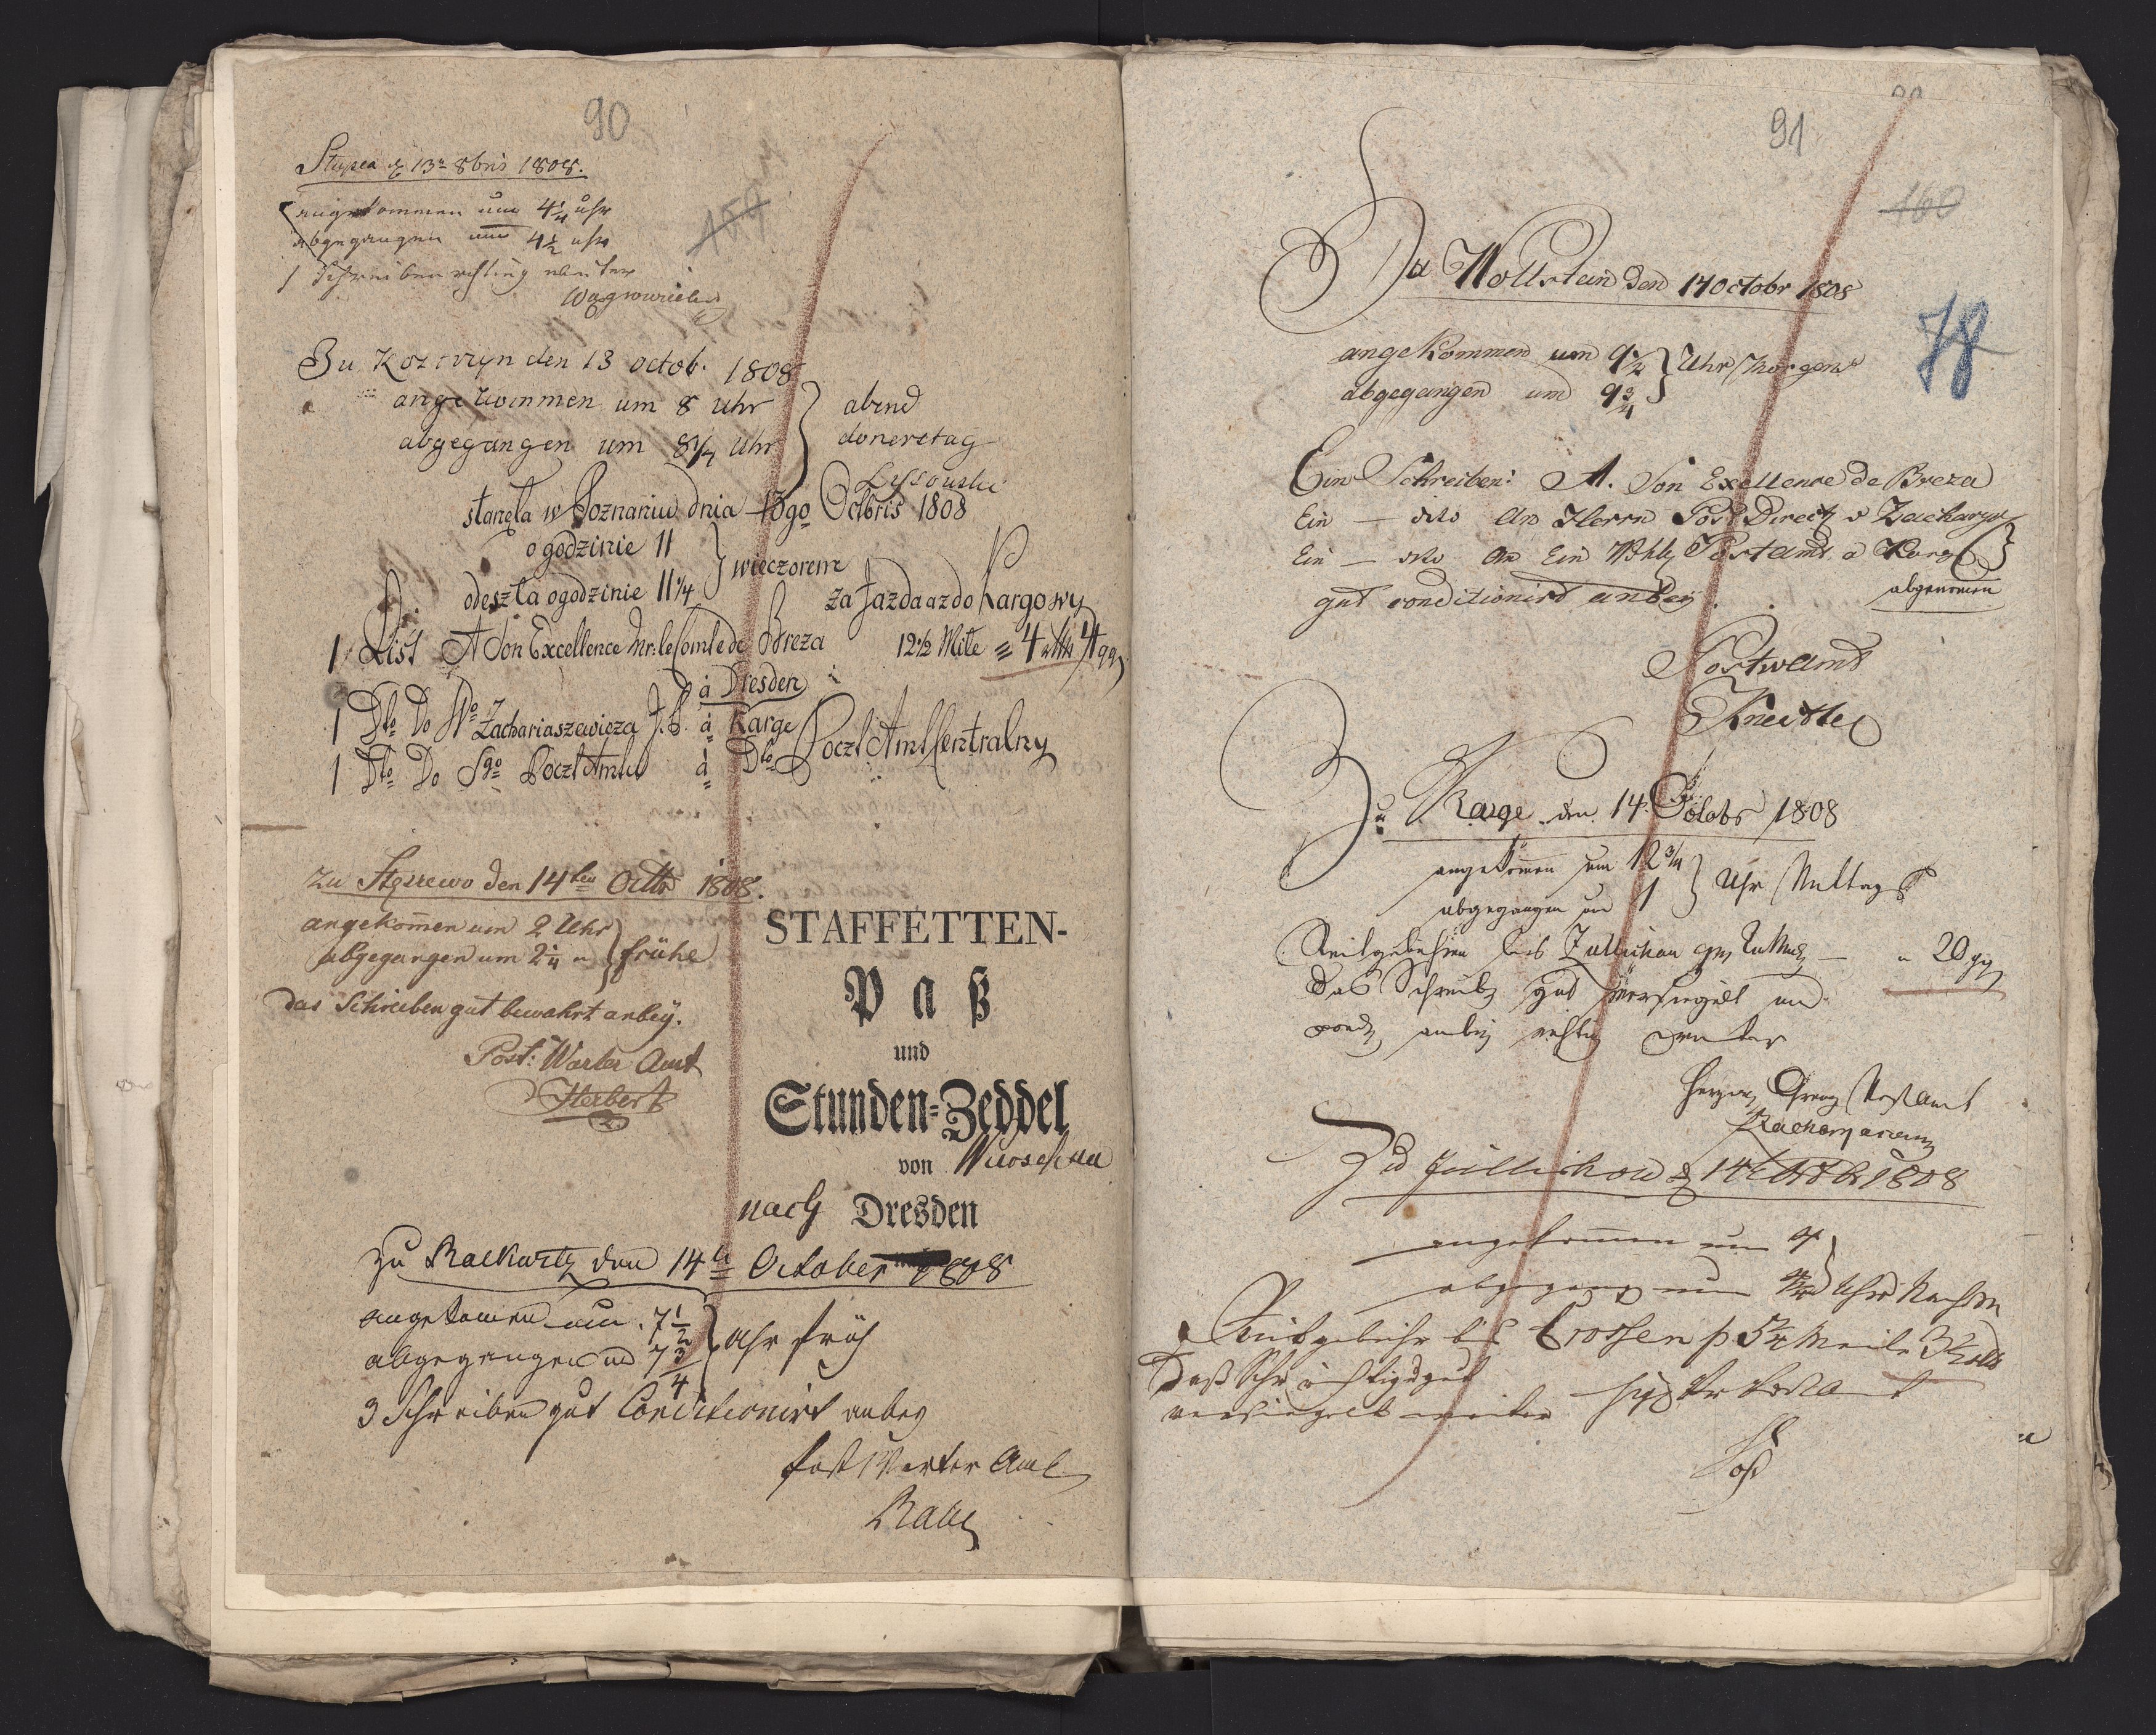 90
159
Stupca d 13n 8bris 1808.
angekommen um 4 1/4 uhr
abgegangen um 4 1/2 uhr
1 Schreiben richtig weiter
Zu Kozivzyn den 13 octob. 1808
angekommen um 8 Uhr
abgegangen um 8 1/4 Uhr
abend
donerctag
Lyssouski
stanęła w Poznaniu dnia 13go Octbris 1808
o godzinie 11
odeszła o godzinie 11 1/4
wieczorem
za Jazda az do Kargowy
1 List A Son Excellence Mr: le Comte de Breza
12 1/2 Mile = 4 4 gg
à Dresden
1 Dto Do Wo Zachariaszewicza J. P. à Karge
1 Dto Do Sgo Poczt Amtu à Dto
Poczt Amt Centralny
Zu Stęszewo den 14ten Octbr 1808.
angekom̄en um 2 Uhr
abgegangen um 2 1/4 "
frühe
das Schreiben gut bewahrt anbey.
Post: Warter Amt
Herbert
STAFFETTEN-
Paß
und
Stunden-Zeddel
von
nach Dresden
Zu Rackwitz den 14ten October 1808
angekomen um 7 1/2
abgegangen um 7 3/4
Uhr früh
3 Schreiben gut Conditionirt anbey
Post Warter Amt
91
160
78
Zu Wollstein den 14 Octobr 1808
angekommen um 9 1/2
abgegangen um 9 3/4
Uhr Morgens
Ein Schreiben: A. Son Exellence de Breza
Ein — dito An Herrn Post Direct v Zacharyas
Ein — dito An Ein Wohll Postamt a Karge
gut conditionirt anbey
abgenomen
Postwamt
Zu Karge den 14. Octobr 1808
angekom̄en um 12 3/4
abgegangen um 1
Uhr Mittags
Reitgebühren bis Züllichau
20 gg
das Schreib gut versiegelt und
anbey richtig weiter
Postamt
Zu Züllichow d 14 Octobr 1808
angekom̄en um 4
abgegang um
Uhr Nachm
Reitgebühr bis Crossen p 5 1/4 Meile
versiegelt weiter
Post